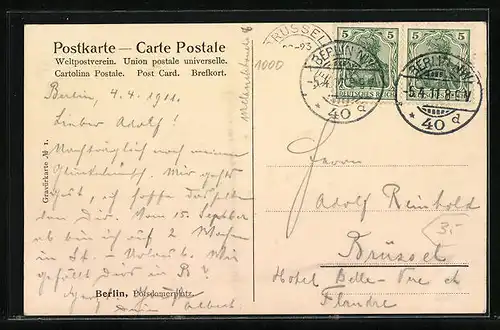 Postkarte — Carte Postale
Weltpostverein. Union postale universelle.
Cartolina Postale. Post Card. Brefkort.
Berlin, 4.4.1911.
Lieber Adolf!
Nachträglich noch meinen
Glückwunsch. Mir geht's
gut, ich hoffe dasselbe
von dir. Vom 15. September
ab bin ich auf 2 Wochen
in Urlaub. Wie
gefällt dir's in B?
Gravürkarte № 1.
Berlin, Potsdamerplatz.
1000
5 5 5 5
DEUTSCHES REICH
BERLIN NW
40 d
BERLIN NW
-5.4.11. 8-9 V.
40 d
Herrn
Adolf Reinhold
Brüssel
Hotel Belle-Vue et
Flandre
3,-